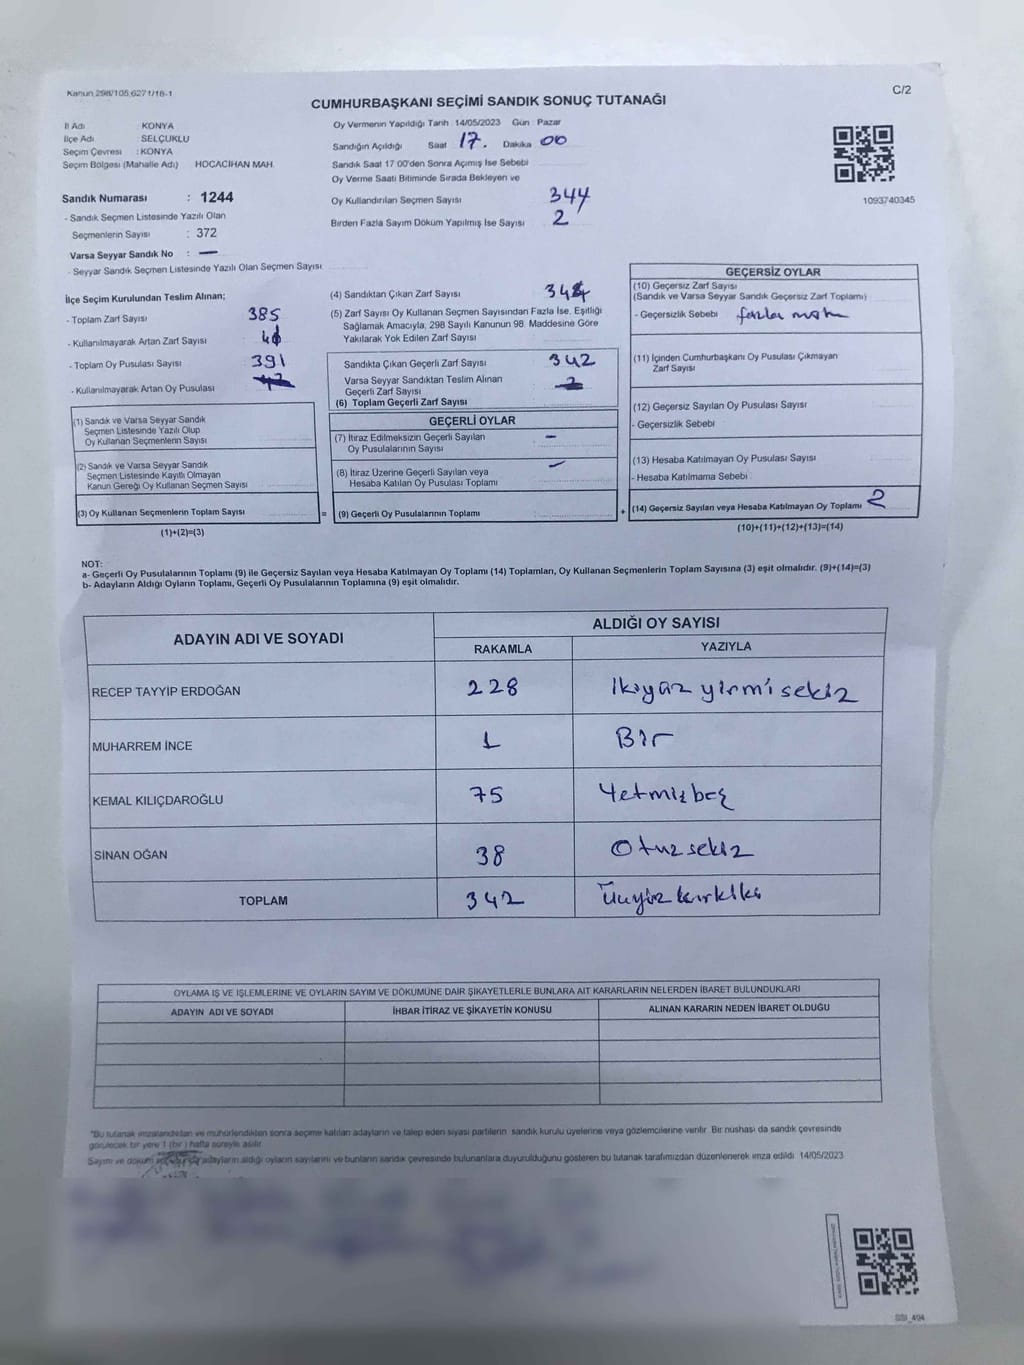 Kanun 298/105,6271/18-1
C/2
CUMHURBAŞKANI SEÇİMİ SANDIK SONUÇ TUTANAĞI
İl Adı KONYA
İlçe Adı SELÇUKLU
Seçim Çevresi : KONYA
Seçim Bölgesi (Mahalle Adı) HOCACİHAN MAH.
Sandık Numarası : 1244
- Sandık Seçmen Listesinde Yazılı Olan
Seçmenlerin Sayısı : 372
Varsa Seyyar Sandık No : —
- Seyyar Sandık Seçmen Listesinde Yazılı Olan Seçmen Sayısı
Oy Vermenin Yapıldığı Tarih 14/05/2023 Gün Pazar
Sandığın Açıldığı Saat 17. Dakika 00
Sandık Saat 17 00'den Sonra Açmış İse Sebebi
Oy Verme Saati Bitiminde Sırada Bekleyen ve
Oy Kullandırılan Seçmen Sayısı 344
Birden Fazla Sayım Döküm Yapılmış İse Sayısı 2
1093740345
İlçe Seçim Kurulundan Teslim Alınan;
- Toplam Zarf Sayısı 385
- Kullanılmayarak Artan Zarf Sayısı
- Toplam Oy Pusulası Sayısı 391
- Kullanılmayarak Artan Oy Pusulası
(1) Sandık ve Varsa Seyyar Sandık
Seçmen Listesinde Yazılı Olup
Oy Kullanan Seçmenlerin Sayısı
(2) Sandık ve Varsa Seyyar Sandık
Seçmen Listesinde Kayıtlı Olmayan
Kanun Gereği Oy Kullanan Seçmen Sayısı
(3) Oy Kullanan Seçmenlerin Toplam Sayısı =
(1)+(2)=(3)
(4) Sandıktan Çıkan Zarf Sayısı
(5) Zarf Sayısı Oy Kullanan Seçmen Sayısından Fazla İse, Eşitliği
Sağlamak Amacıyla, 298 Sayılı Kanunun 98. Maddesine Göre
Yakılarak Yok Edilen Zarf Sayısı
Sandıkta Çıkan Geçerli Zarf Sayısı 342
Varsa Seyyar Sandıktan Teslim Alınan
Geçerli Zarf Sayısı
(6) Toplam Geçerli Zarf Sayısı
GEÇERLİ OYLAR
(7) İtiraz Edilmeksizin Geçerli Sayılan —
Oy Pusulalarının Sayısı
(8) İtiraz Üzerine Geçerli Sayılan veya —
Hesaba Katılan Oy Pusulası Toplamı
(9) Geçerli Oy Pusulalarının Toplamı +
GEÇERSİZ OYLAR
(10) Geçersiz Zarf Sayısı
(Sandık ve Varsa Seyyar Sandık Geçersiz Zarf Toplamı)
- Geçersizlik Sebebi fazla
(11) İçinden Cumhurbaşkanı Oy Pusulası Çıkmayan
Zarf Sayısı
(12) Geçersiz Sayılan Oy Pusulası Sayısı
- Geçersizlik Sebebi
(13) Hesaba Katılmayan Oy Pusulası Sayısı
- Hesaba Katılmama Sebebi
(14) Geçersiz Sayılan veya Hesaba Katılmayan Oy Toplamı 2
(10)+(11)+(12)+(13)=(14)
NOT:
a- Geçerli Oy Pusulalarının Toplamı (9) ile Geçersiz Sayılan veya Hesaba Katılmayan Oy Toplamı (14) Toplamları, Oy Kullanan Seçmenlerin Toplam Sayısına (3) eşit olmalıdır. (9)+(14)=(3)
b- Adayların Aldığı Oyların Toplamı, Geçerli Oy Pusulalarının Toplamına (9) eşit olmalıdır.
ADAYIN ADI VE SOYADI
ALDIĞI OY SAYISI
RAKAMLA YAZIYLA
RECEP TAYYİP ERDOĞAN 228 İkiyüz yirmi sekiz
MUHARREM İNCE 1 Bir
KEMAL KILIÇDAROĞLU 75 Yetmiş beş
SİNAN OĞAN 38 Otuz sekiz
TOPLAM 342 Üçyüz kırkiki
OYLAMA İŞ VE İŞLEMLERİNE VE OYLARIN SAYIM VE DÖKÜMÜNE DAİR ŞİKAYETLERLE BUNLARA AİT KARARLARIN NELERDEN İBARET BULUNDUKLARI
ADAYIN ADI VE SOYADI İHBAR İTİRAZ VE ŞİKAYETİN KONUSU ALINAN KARARIN NEDEN İBARET OLDUĞU
*Bu tutanak imzalandıktan ve mühürlendikten sonra seçime katılan adayların ve talep eden siyasi partilerin sandık kurulu üyelerine veya gözlemcilerine verilir. Bir nüshası da sandık çevresinde
görülecek bir yere 1 (bir) hafta süreyle asılır.
Sayım ve döküm adayların aldığı oyların sayılarını ve bunların sandık çevresinde bulunanlara duyurulduğunu gösteren bu tutanak tarafımızdan düzenlenerek imza edildi 14/05/2023
SSI_494